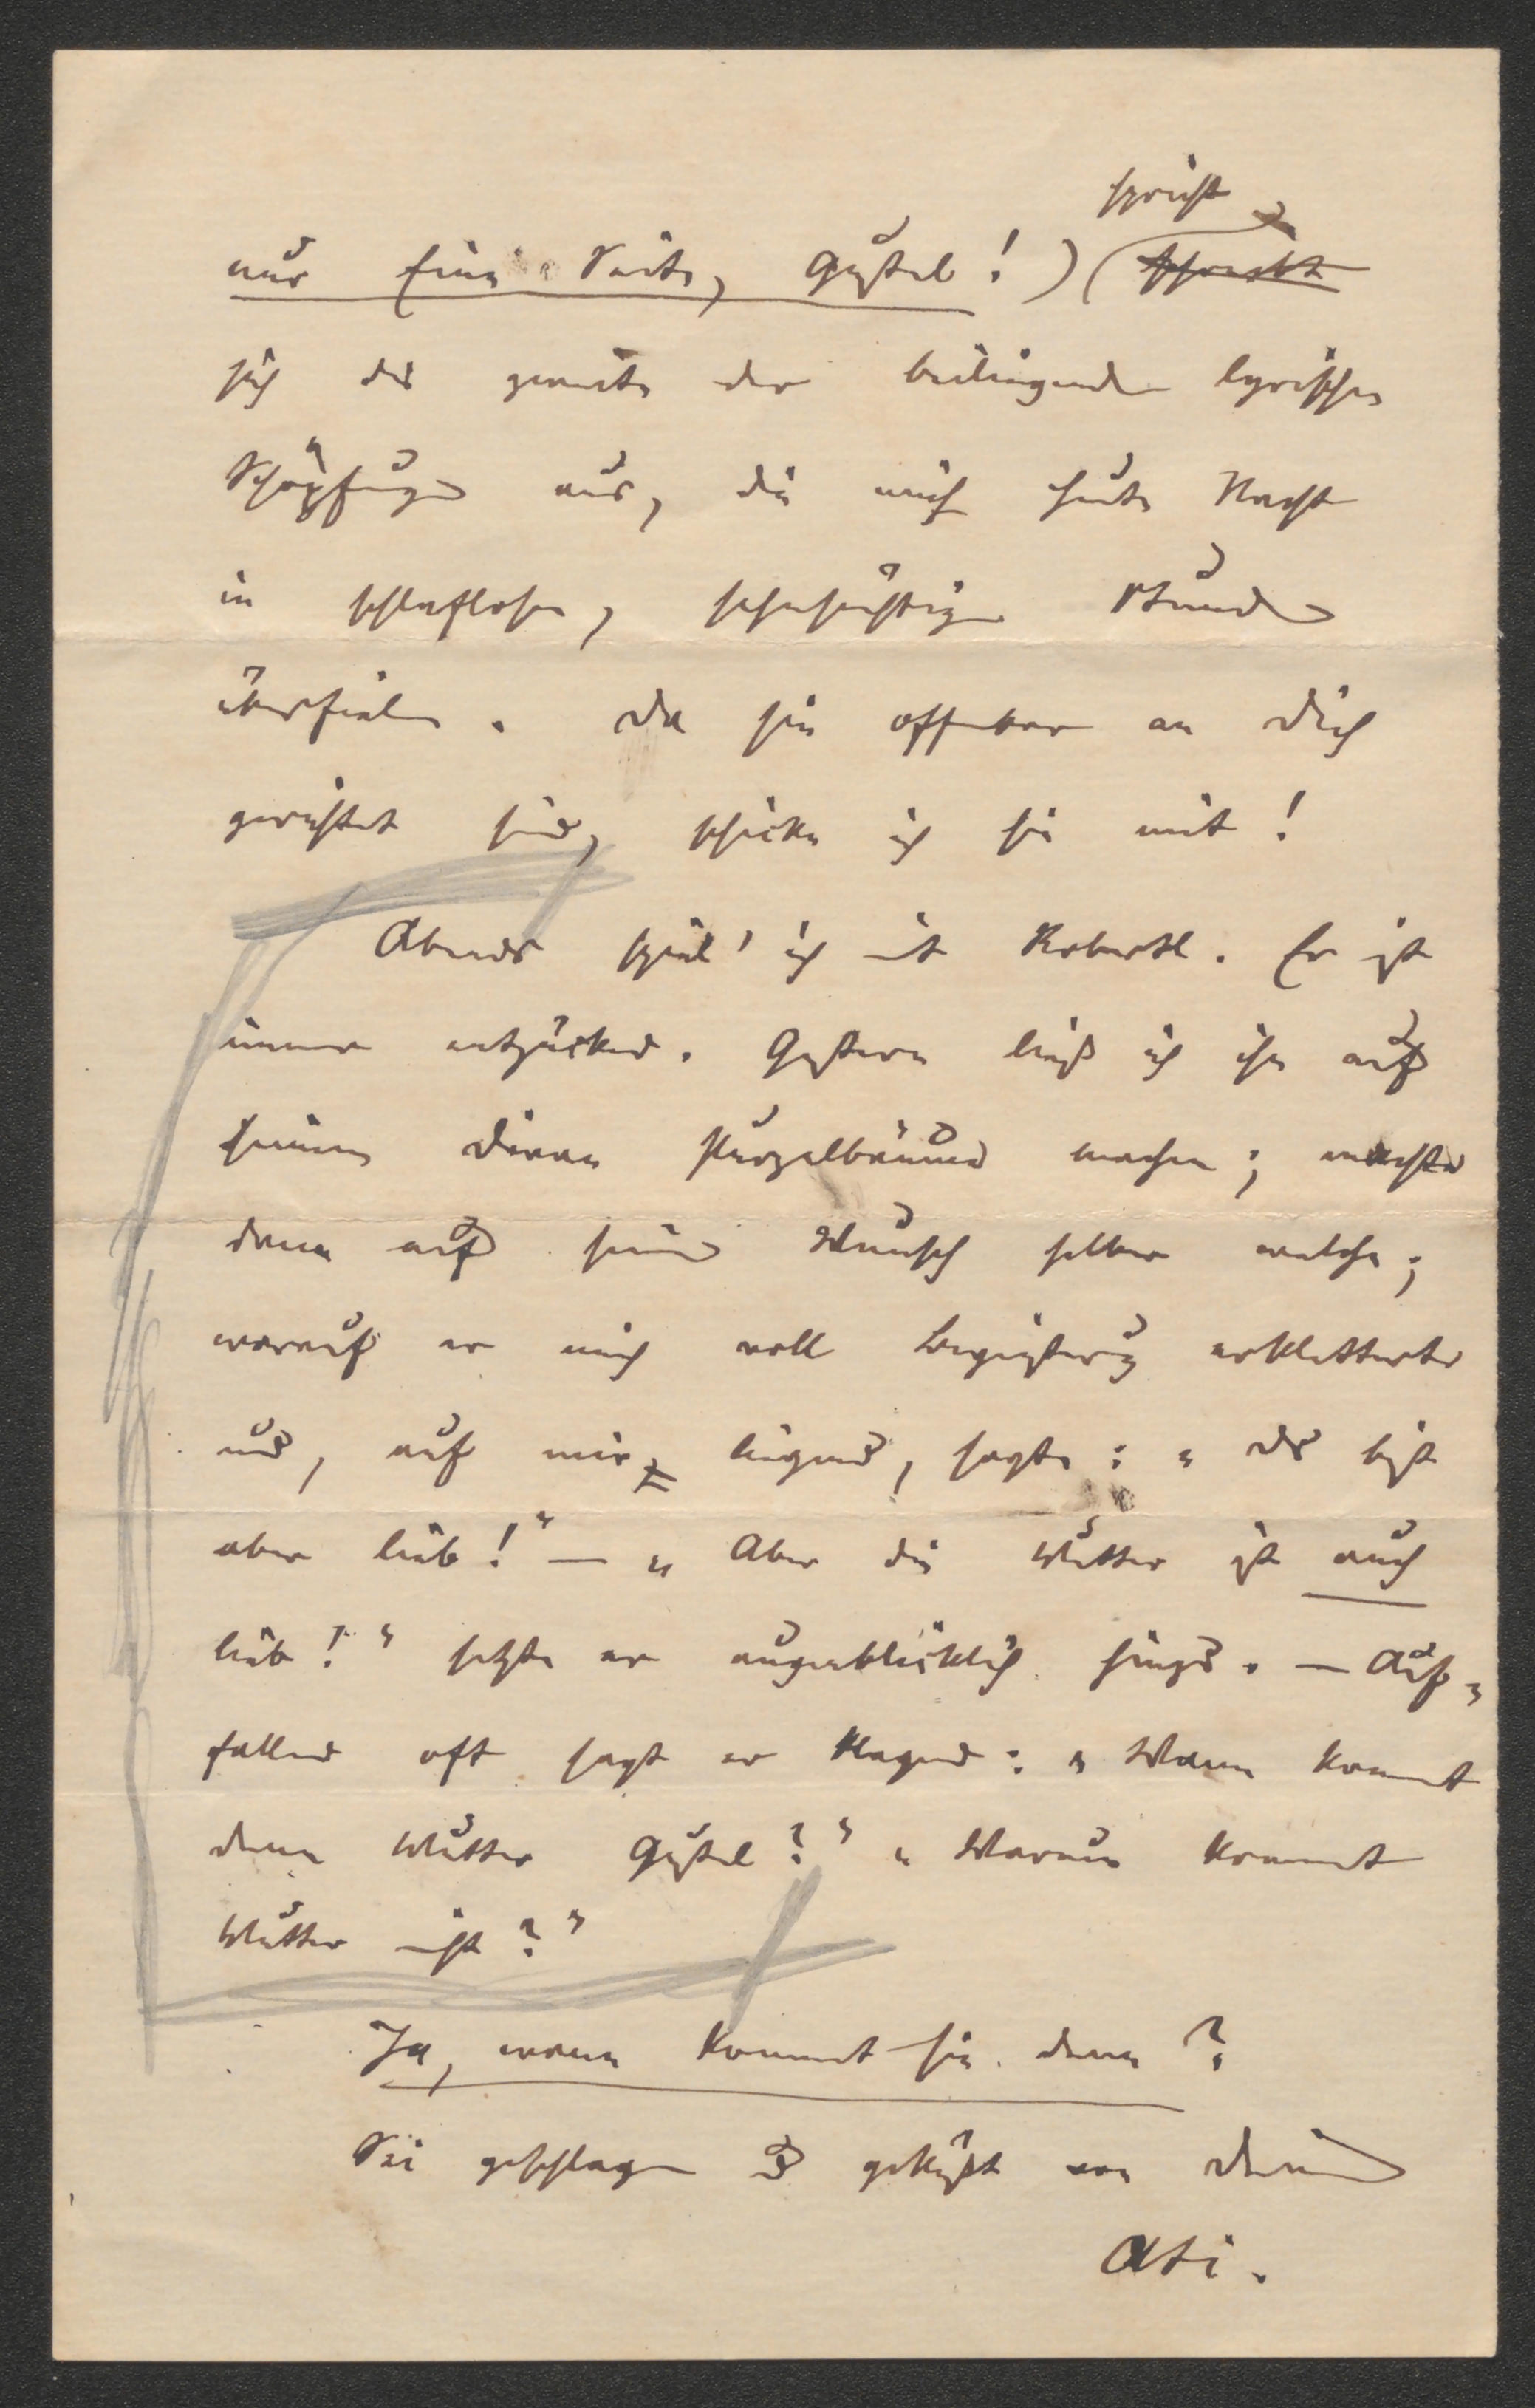 spricht
nur Eine Seite, Gustel!) (spricht
sich das zweite der beiliegenden lyrischen
Schöpfungen aus, die mich heute Nacht
in schlaflosen, sehnsüchtigen Stunden
überfielen. Da sie offenbar an Dich
gerichtet sind, schicke ich sie mit!
Abends spiel' ich mit Robertl. Er ist
immer entzückend. Gestern ließ ich ihn auf
seinem Divan Purzelbäume machen; machte
dann auf seinen Wunsch selber welche;
worauf er mich voll Begeisterung erkletterte
und, auf mir liegend, sagte: „Du bist
aber lieb!" — „Aber die Mutter ist auch
lieb!" setzte er augenblicklich hinzu. — Auf-
fallend oft sagt er klagend: „Wann kommt
denn Mutter Gustel?" „Warum kommt
Mutter nicht?"
Ja, wann kommt sie denn?
Sei geschlagen & geküßt von Deinem
Ati.